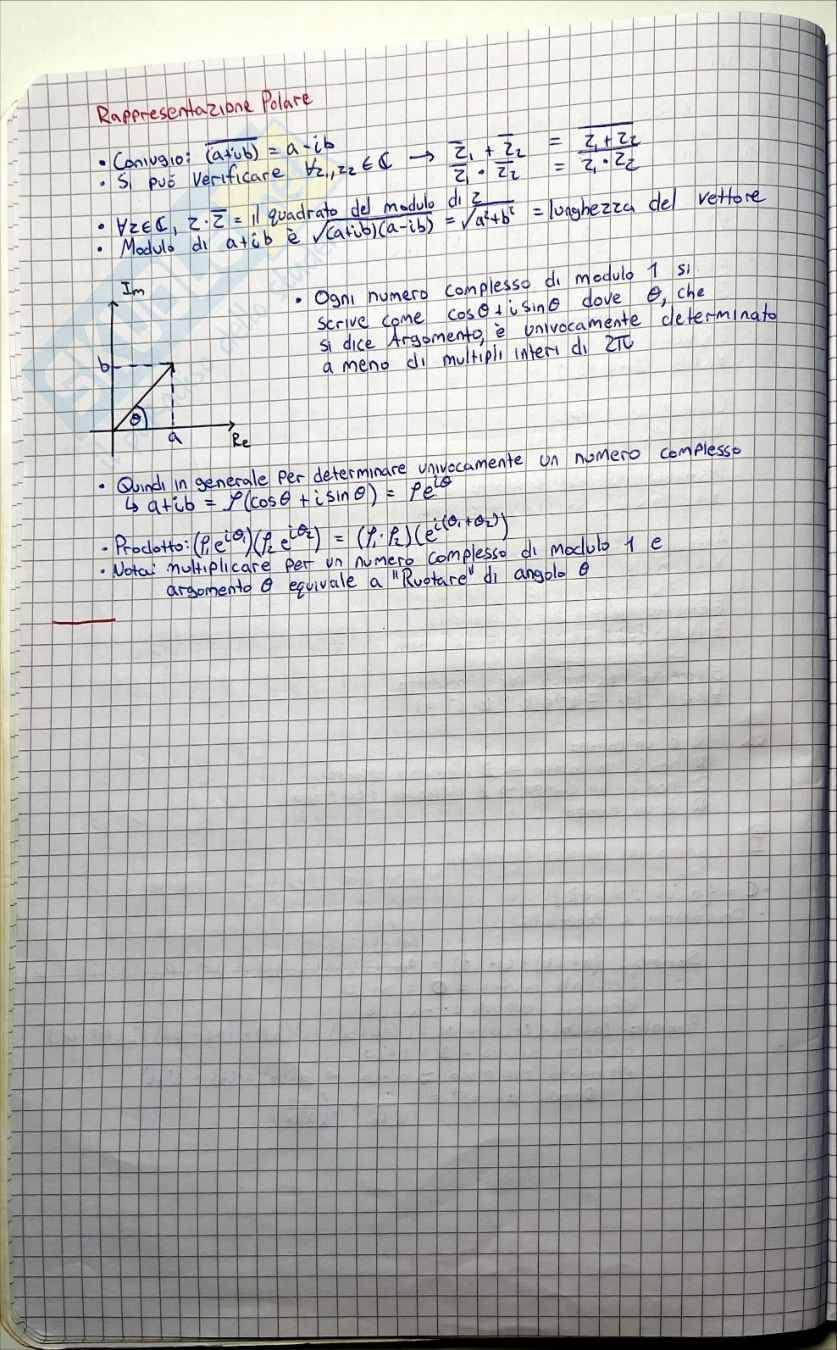 Rappresentazione Polare
• Coniugio: \overline{(a+ib)} = a-ib
• Si può verificare ∀z₁,z₂ ∈ ℂ → \overline{z}₁ + \overline{z}₂ = \overline{z₁+z₂}
\overline{z}₁ · \overline{z}₂ = \overline{z₁·z₂}
• ∀z∈ℂ, z·\overline{z} = il quadrato del modulo di z
• Modulo di a+ib è √(a+ib)(a-ib) = √a²+b² = lunghezza del vettore
Im
b
θ
a
Re
• Ogni numero complesso di modulo 1 si
scrive come cosθ+isinθ dove θ, che
si dice Argomento, è univocamente determinato
a meno di multipli interi di 2π
• Quindi in generale per determinare univocamente un numero complesso
↳ a+ib = ρ(cosθ + i sinθ) = ρe^{iθ}
• Prodotto: (ρ₁e^{iθ₁})(ρ₂e^{iθ₂}) = (ρ₁·ρ₂)(e^{i(θ₁+θ₂)})
• Nota: multiplicare per un numero complesso di modulo 1 e
argomento θ equivale a "Ruotare" di angolo θ